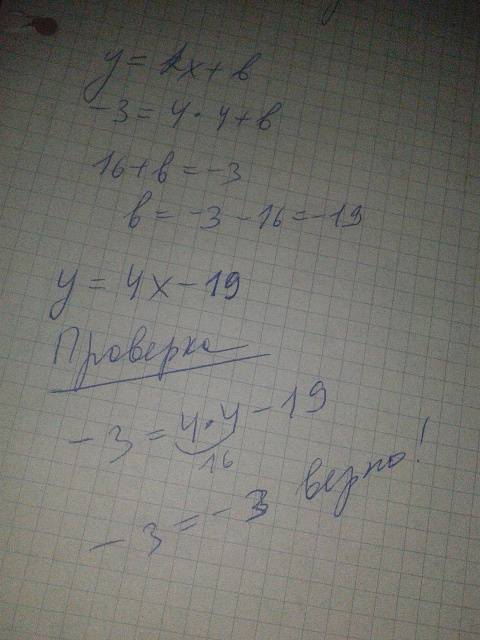 y = kx + b
-3 = 4·4 + b
16 + b = -3
b = -3 - 16 = -19
y = 4x - 19
Проверка
-3 = 4·4 - 19
16
-3 = -3 верно!